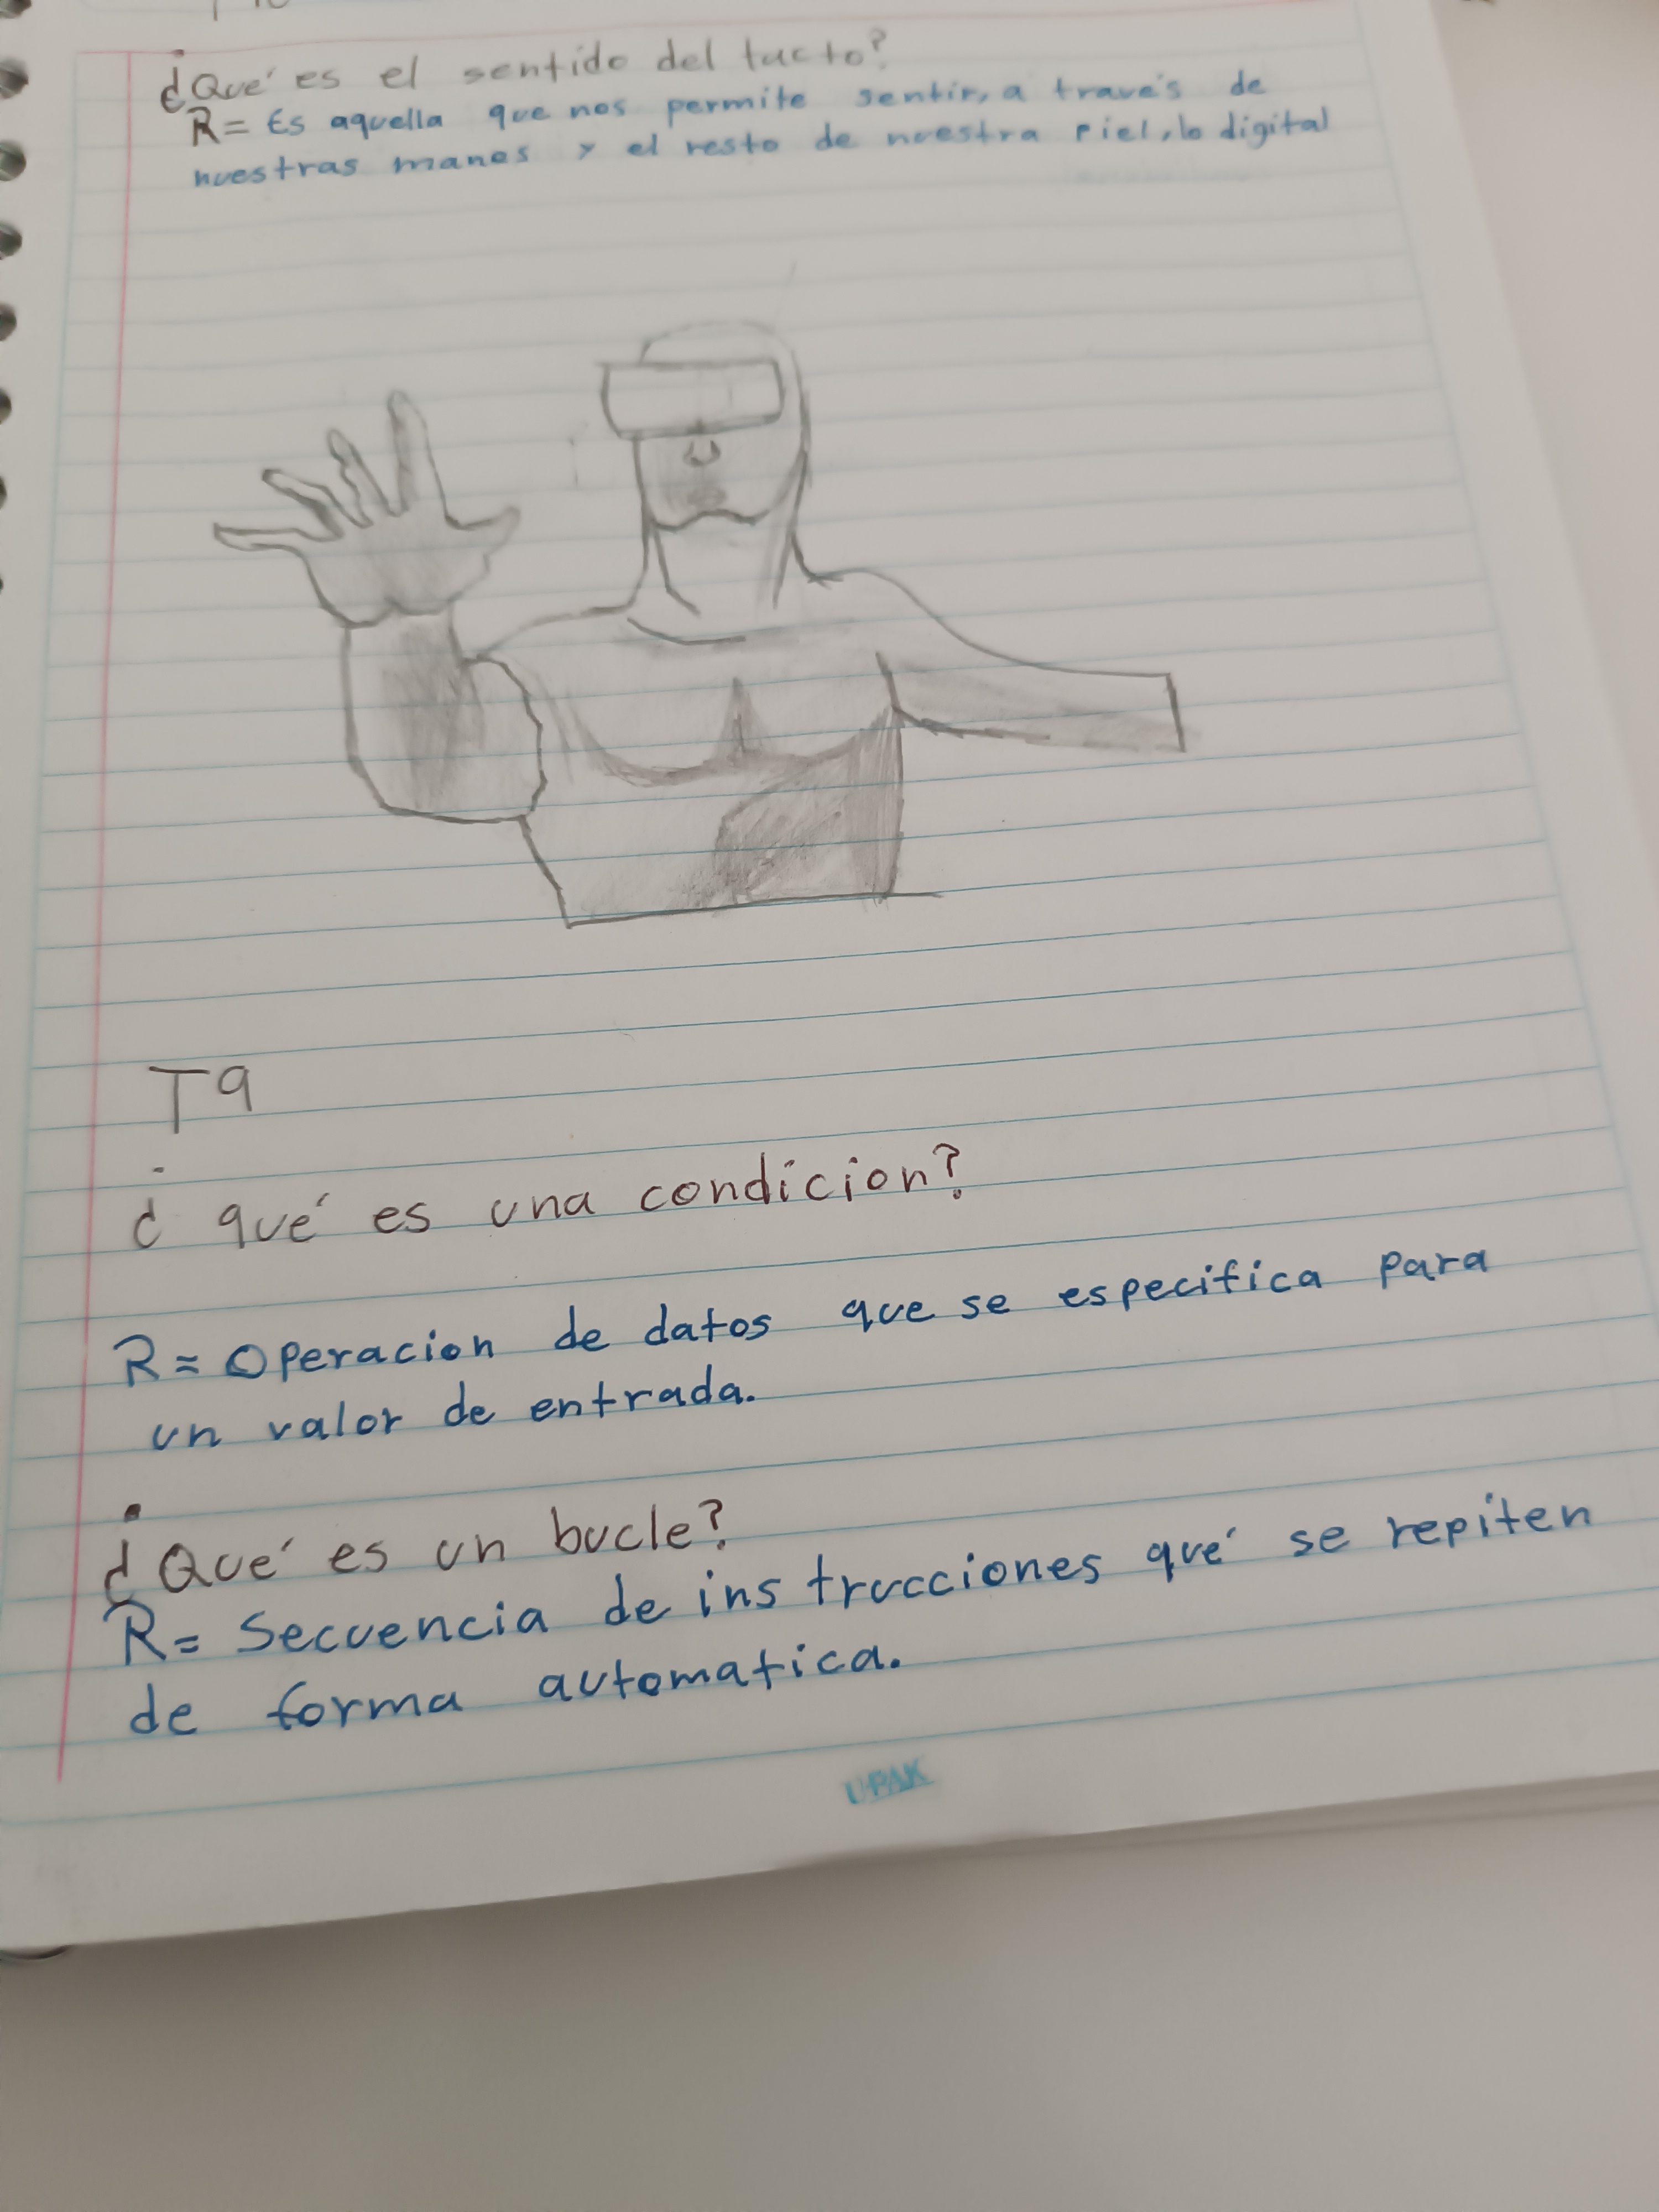 ¿Qué es el sentido del tacto?
R= Es aquella que nos permite sentir, a través de
nuestras manos y el resto de nuestra piel, lo digital
T9
¿ qué es una condicion?
R= Operacion de datos que se especifica para
un valor de entrada.
¿Qué es un bucle?
R= Secuencia de ins trucciones qué se repiten
de forma automatica.